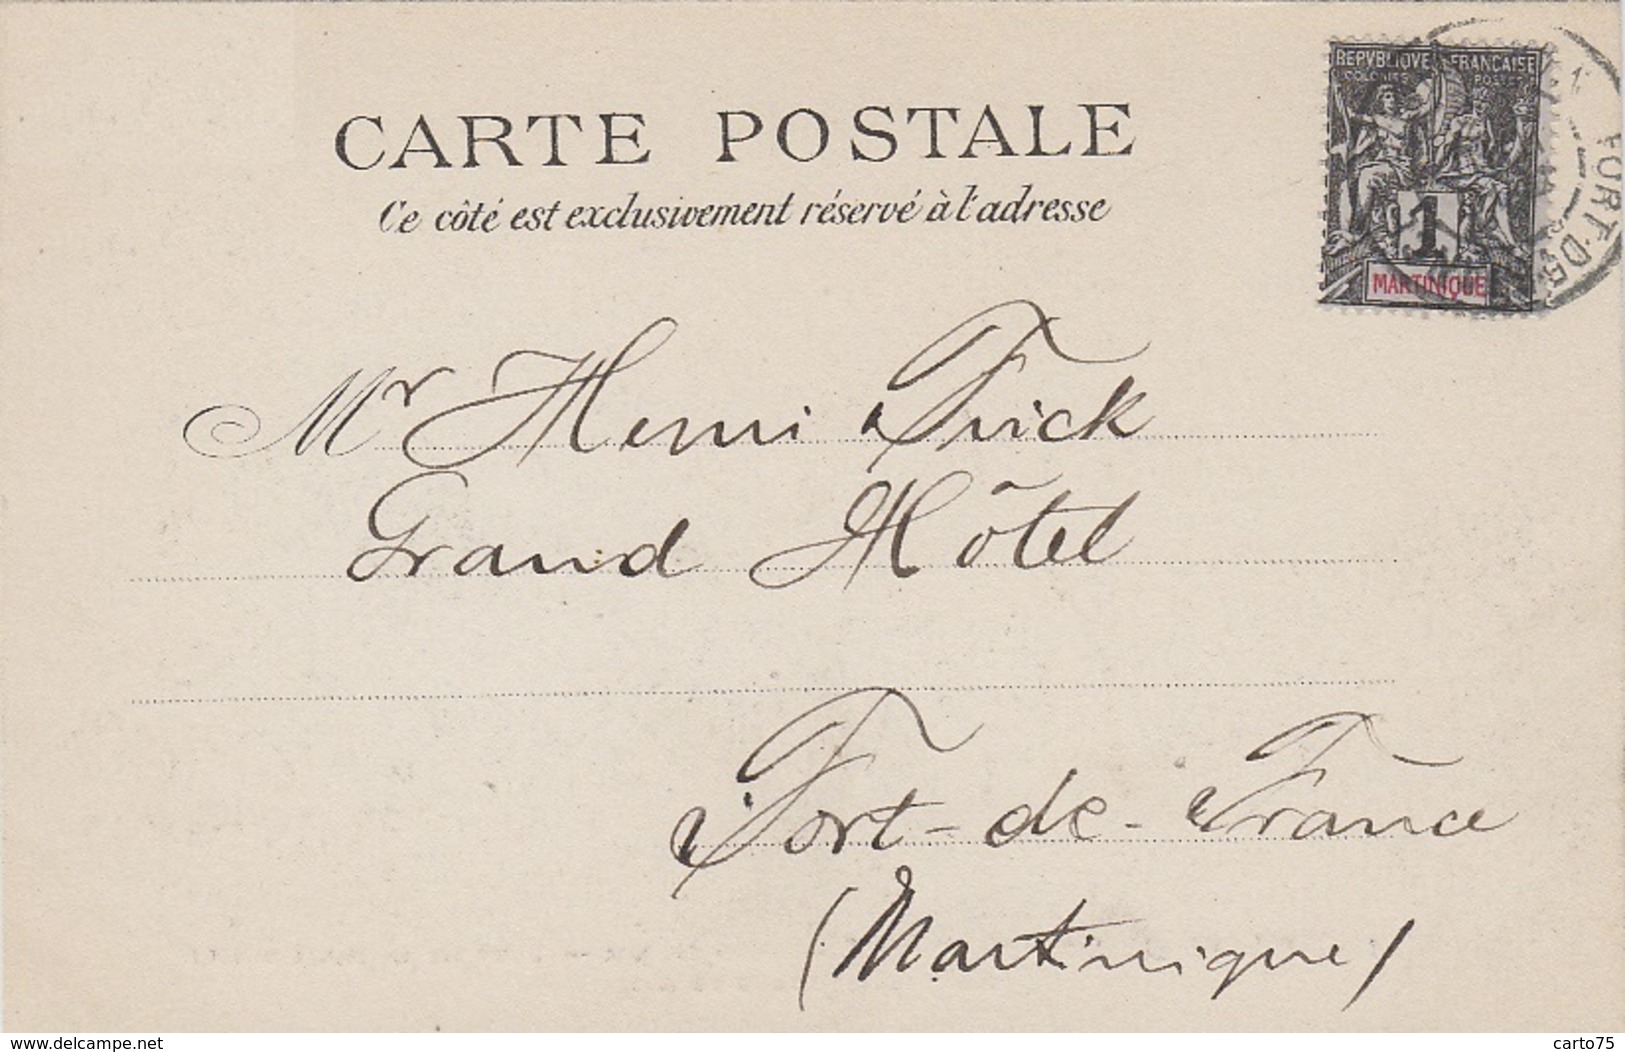 CARTE POSTALE
Ce côté est exclusivement réservé à l'adresse
REPVBLIQVE FRANCAISE
COLONIES POSTES
1
MARTINIQUE
FORT-DE
Mr Henri Frick
Grand Hôtel
Fort-de-France
(Martinique)
www.delcampe.net
carto75